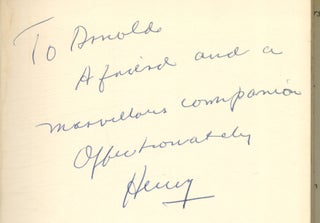 To Arnold
A friend and a
marvellous companion
Affectionately
Henry